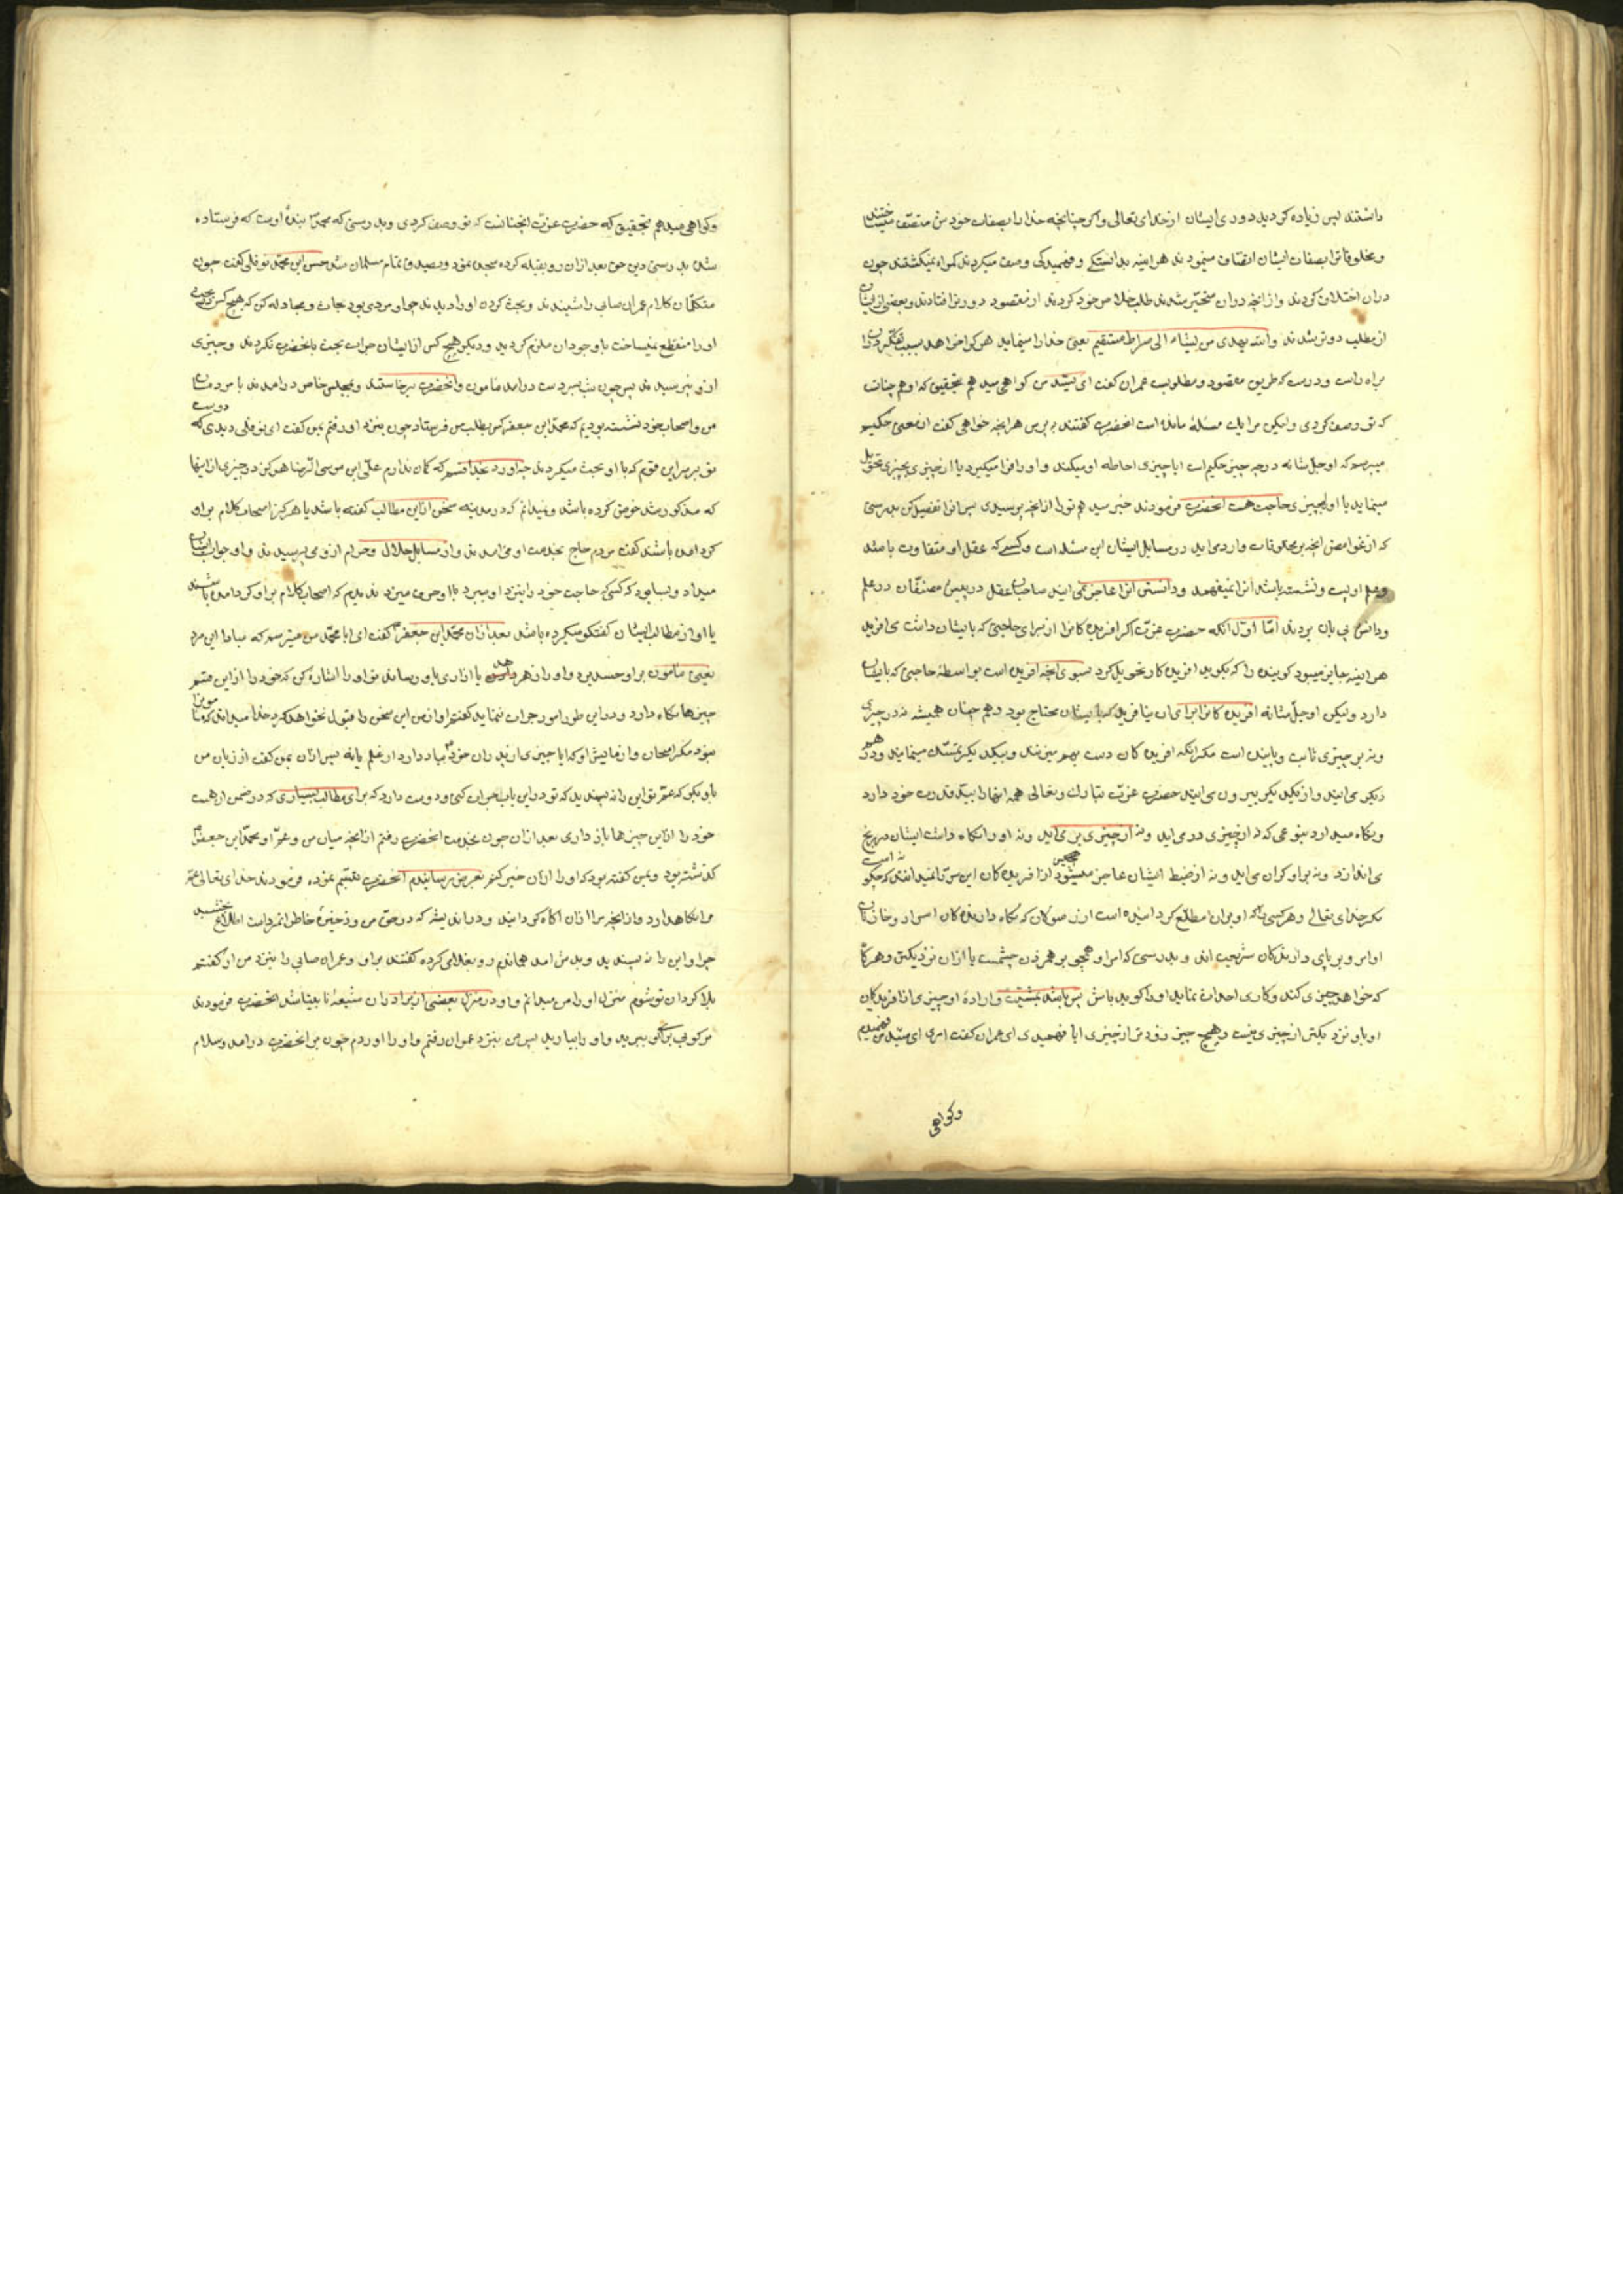 داشتند پس زیاده کردید دوری ایشان از خدای تعالی و اکر چنانچه خدا را بصفات خودش متصف میساختند
و مخلوقاترا بصفات ایشان اتصاف مینمودند هر اینه بدانستکی و فهمیدکی وصف میکردند کمراه نمیکشتند چون
دران اختلاف کردند و از انچه دران متحیر شدند طلب خلاص خود کردند از مقصود دورتر افتادند و بعضی از ایشان
از مطلب دورتر شدند والله یهدی من یشاء الی صراط مستقیم یعنی خدا راه مینماید هر کرا خواهد
براه راست و درست که طریق مقصود و مطلوبست عمران کفت ای سید من کواهی میدهم بتحقیق که او همچنانست
که تو وصف کردی ولیکن مرا یک مسئله مانده است انحضرت کفتند بپرس هر انچه خواهی کفت از معنی حکیم
میپرسم که او جل شانه در چه چیز حکیم است ایا چیزی احاطه او میکند و او را فرا میکیرد یا از چیزی بچیزی تحویل
مینماید یا او را بچیزی حاجت هست انحضرت فرمودند خبر میدهم تو را از انچه پرسیدی پس انرا تفصیل کن بدرستی
که از غوامض انچه بر مخلوقات وارد می اید در مسایل ایشان این مسئله است و کسی که عقل او متفاوت باشد
و علم او پست و نشسته باشد انرا نمیفهمد و از دانستن انرا عاجز نمی ایند صاحبان عقل در پیش مصنفان در علم
و دانش پی بان بردند اما اول انکه حضرت عزت اکر افریده کانرا از برای حاجتی که بایشان داشت می افرید
هر اینه جایز میبود کوینده را که بکوید افریده کار تحویل کرد بسوی انچه افریده است بواسطه حاجتی که بایشان
دارد ولیکن او جل شانه افریده کانرا برای ان نیافریده که بایشان محتاج بود و همچنان همیشه نه در چیزی
و نه بر چیزی ثابت و پاینده است مکر انکه افریده کان دست بهم میزنند و بیکدیکر تمسک مینمایند و در هم
دیکر می ایند و از یکدیکر بیرون می ایند حضرت عزت تبارک و تعالی همه انها را بید قدرت خود دارد
و نکاه میدارد بنوعی که نه از چیزی در می اید و نه از چیزی بر می اید و نه او را نکاه داشت ایشان در رنج
می اندازد و نه بر او کران می اید و نه از ضبط ایشان عاجز میشود هیچکس از افریده کان این سر را نمیدانند که چکونه است
مکر خدای تعالی و هر کسی را که او بران مطلع کردانیده است از رسولان که نکاه دارنده کان اسرار و خازنان
او امر و برپای دارنده کان شریعت اند و بدرستی که امر او همچو بر هم زدن چشمست یا ازان نزدیکتر و هر کاه
که خواهد چیزی کند و کاری احداث نماید او را کوید باش پس باشد بمشیت و اراده او چیزی از افریدکان
او باو نزدیکتر از چیزی نیست و هیچ چیز دورتر از چیزی ایا فهمیدی ای عمران کفت اری ای سید من فهمیدم
وکواهی
وکواهی میدهم بتحقیق که حضرت عزت انچنانست که تو وصف کردی و بدرستی که محمد بنده اوست که فرستاده
شده بدرستی دین حق بعد ازان رو بقبله کرده سجده نمود و بصدق تمام مسلمان شد حسن ابن محمد نوفلی کفت چون
متکلمان کلام عمران صابی را شنیدند و بحث کردن او را دیدند چه او مردی بود بحاث و مجادله کن که هیچ کس در بحث
او را منقطع نمیساخت باوجود ان ملزم کردید و دیکر هیچ کس از ایشان جرات بحث بانحضرت نکردند و چیزی
ازو نپرسیدند پس چون شب بسر دست درامد مامون و انحضرت برخاستند و بمجلس خاص درامدند با مردمان
من و اصحاب خود نشسته بودیم که محمد ابن جعفر کس بطلب من فرستاد چون بنزد او رفتم بمن کفت ای نوفلی دیدی که دوست
تو بر سر این قوم که با او بحث میکردند چه اورد بخدا قسم که کمان ندارم علی ابن موسی الرضا هرکز در چیزی از اینها
که مذکور شد خوض کرده باشد و نمیدانم که در مدینه سخن از این مطالب کفته باشد یا هرکز اصحاب کلام بر او
کرد امده باشند کفت مردم حاج بخدمت او می امدند و از مسایل حلال و حرام ازو می پرسیدند و او جواب ایشان
میداد و بسا بود که کسی حاجت خود را بنزد او میبرد با او حرف میزد ندیدم که اصحاب کلام بر او کرد امده باشند
یا او از مطالب ایشان کفتکو میکرده باشد بعد ازان محمد ابن جعفر کفت ای ابا محمد من میترسم که مبادا این مرد
یعنی مامون بر او حسد برد و او را زهر دهد یا ازاری باو رساند تو او را اشاره کن که خود را از این قسم
چیزها نکاه دارد و در این طور امور جرات ننماید کفتم او از من این سخن را قبول نخواهد کرد خدا میداند که مامون را
نبود مکر امتحان و ازمایش او که ایا چیزی از پدران خود بیاد دارد از علم یا نه پس ازان بمن کفت از زبان من
باو بکو که عم تو این را نه پسندید که تو در این باب جرات کنی و دوست دارد که برای مطالب بسیاری که در ضمن ان هست
خود را ازاین چیزها باز داری بعد ازان چون بخدمت انحضرت رفتم از انچه میان من و عم او محمد ابن جعفر
کذشته بود و بمن کفته بود که او را ازان خبر کنم بعرض رسانیدم انحضرت تبسم نموده فرمودند خدای تعالی عم
مرا نکاهدارد و از انچه مرا ازان اکاه کردانید و در اندیشه که در حق من در خاطر انور داشت اطلاع بخشید
چرا و این را نه پسندید و بدش امد هماندم رو بغلامی کرده کفتند برو و عمران صابی را بنزد من ار کفتم
بلا کردان تو شوم منزل او را من میدانم و او در منزل بعضی از برادران شیعه ما میباشد انحضرت فرمودند
مرکوبی برای او ببرید و او را بیاورید پس من بنزد عمران رفتم و او را اوردم چون بر انحضرت درامد و سلام